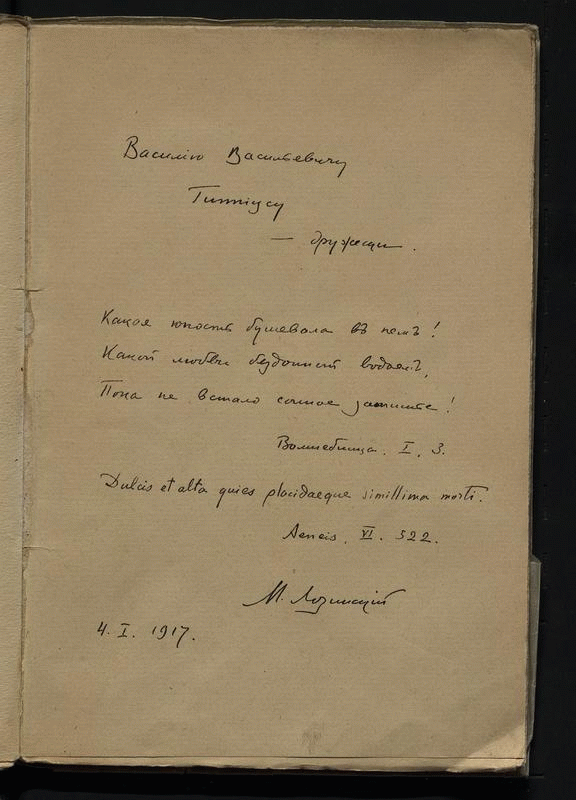 Василію Васильевичу
Гиппіусу
— дружески.
Какая юность бушевала въ немъ!
Какой любви бездонный водоемъ,
Пока не встало сонное затишье!
Волшебница. I, 3.
Dulcis et alta quies placidaeque simillima morti.
Aeneis. VI. 522.
М. Лозинскій
4. I. 1917.